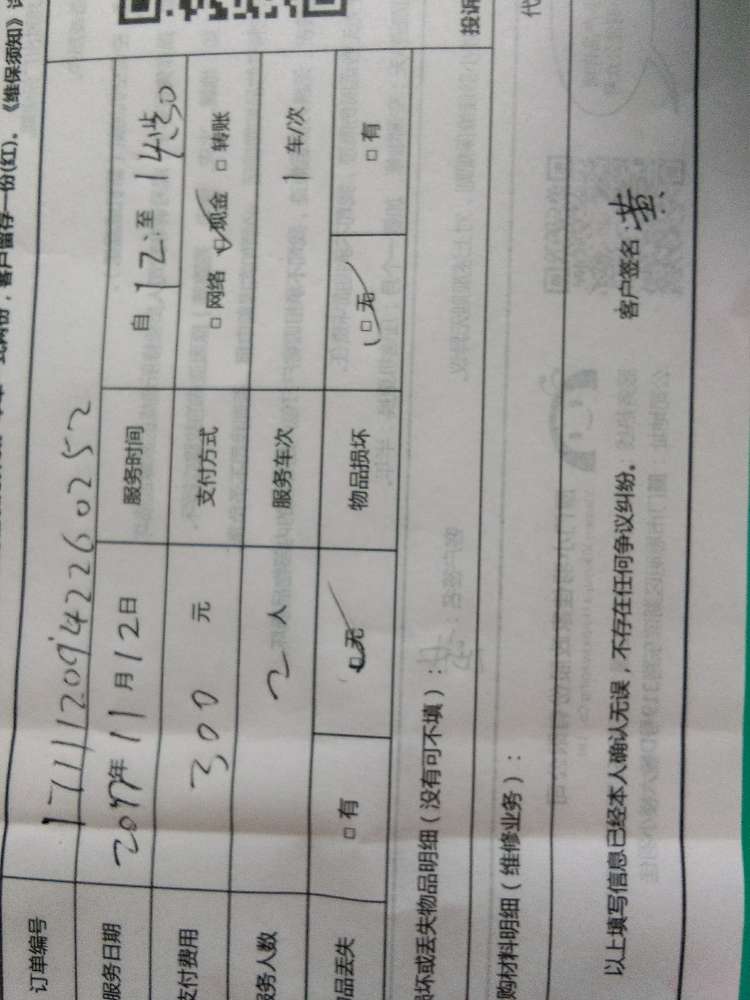 式两份，客户留存一份(红)。《维保须知》
投诉
代
订单编号 1711120942260252
服务日期 2017年11月12日 服务时间 自 12:至 14:30
支付费用 300 元 支付方式 □网络 ☑现金 □转账
服务人数 2 人 服务车次 1 车/次
物品丢失 □有 ☑无 物品损坏 ☑无 □有
损坏或丢失物品明细（没有可不填）：
购材料明细（维修业务）：
以上填写信息已经本人确认无误，不存在任何争议纠纷。 客户签名：黄